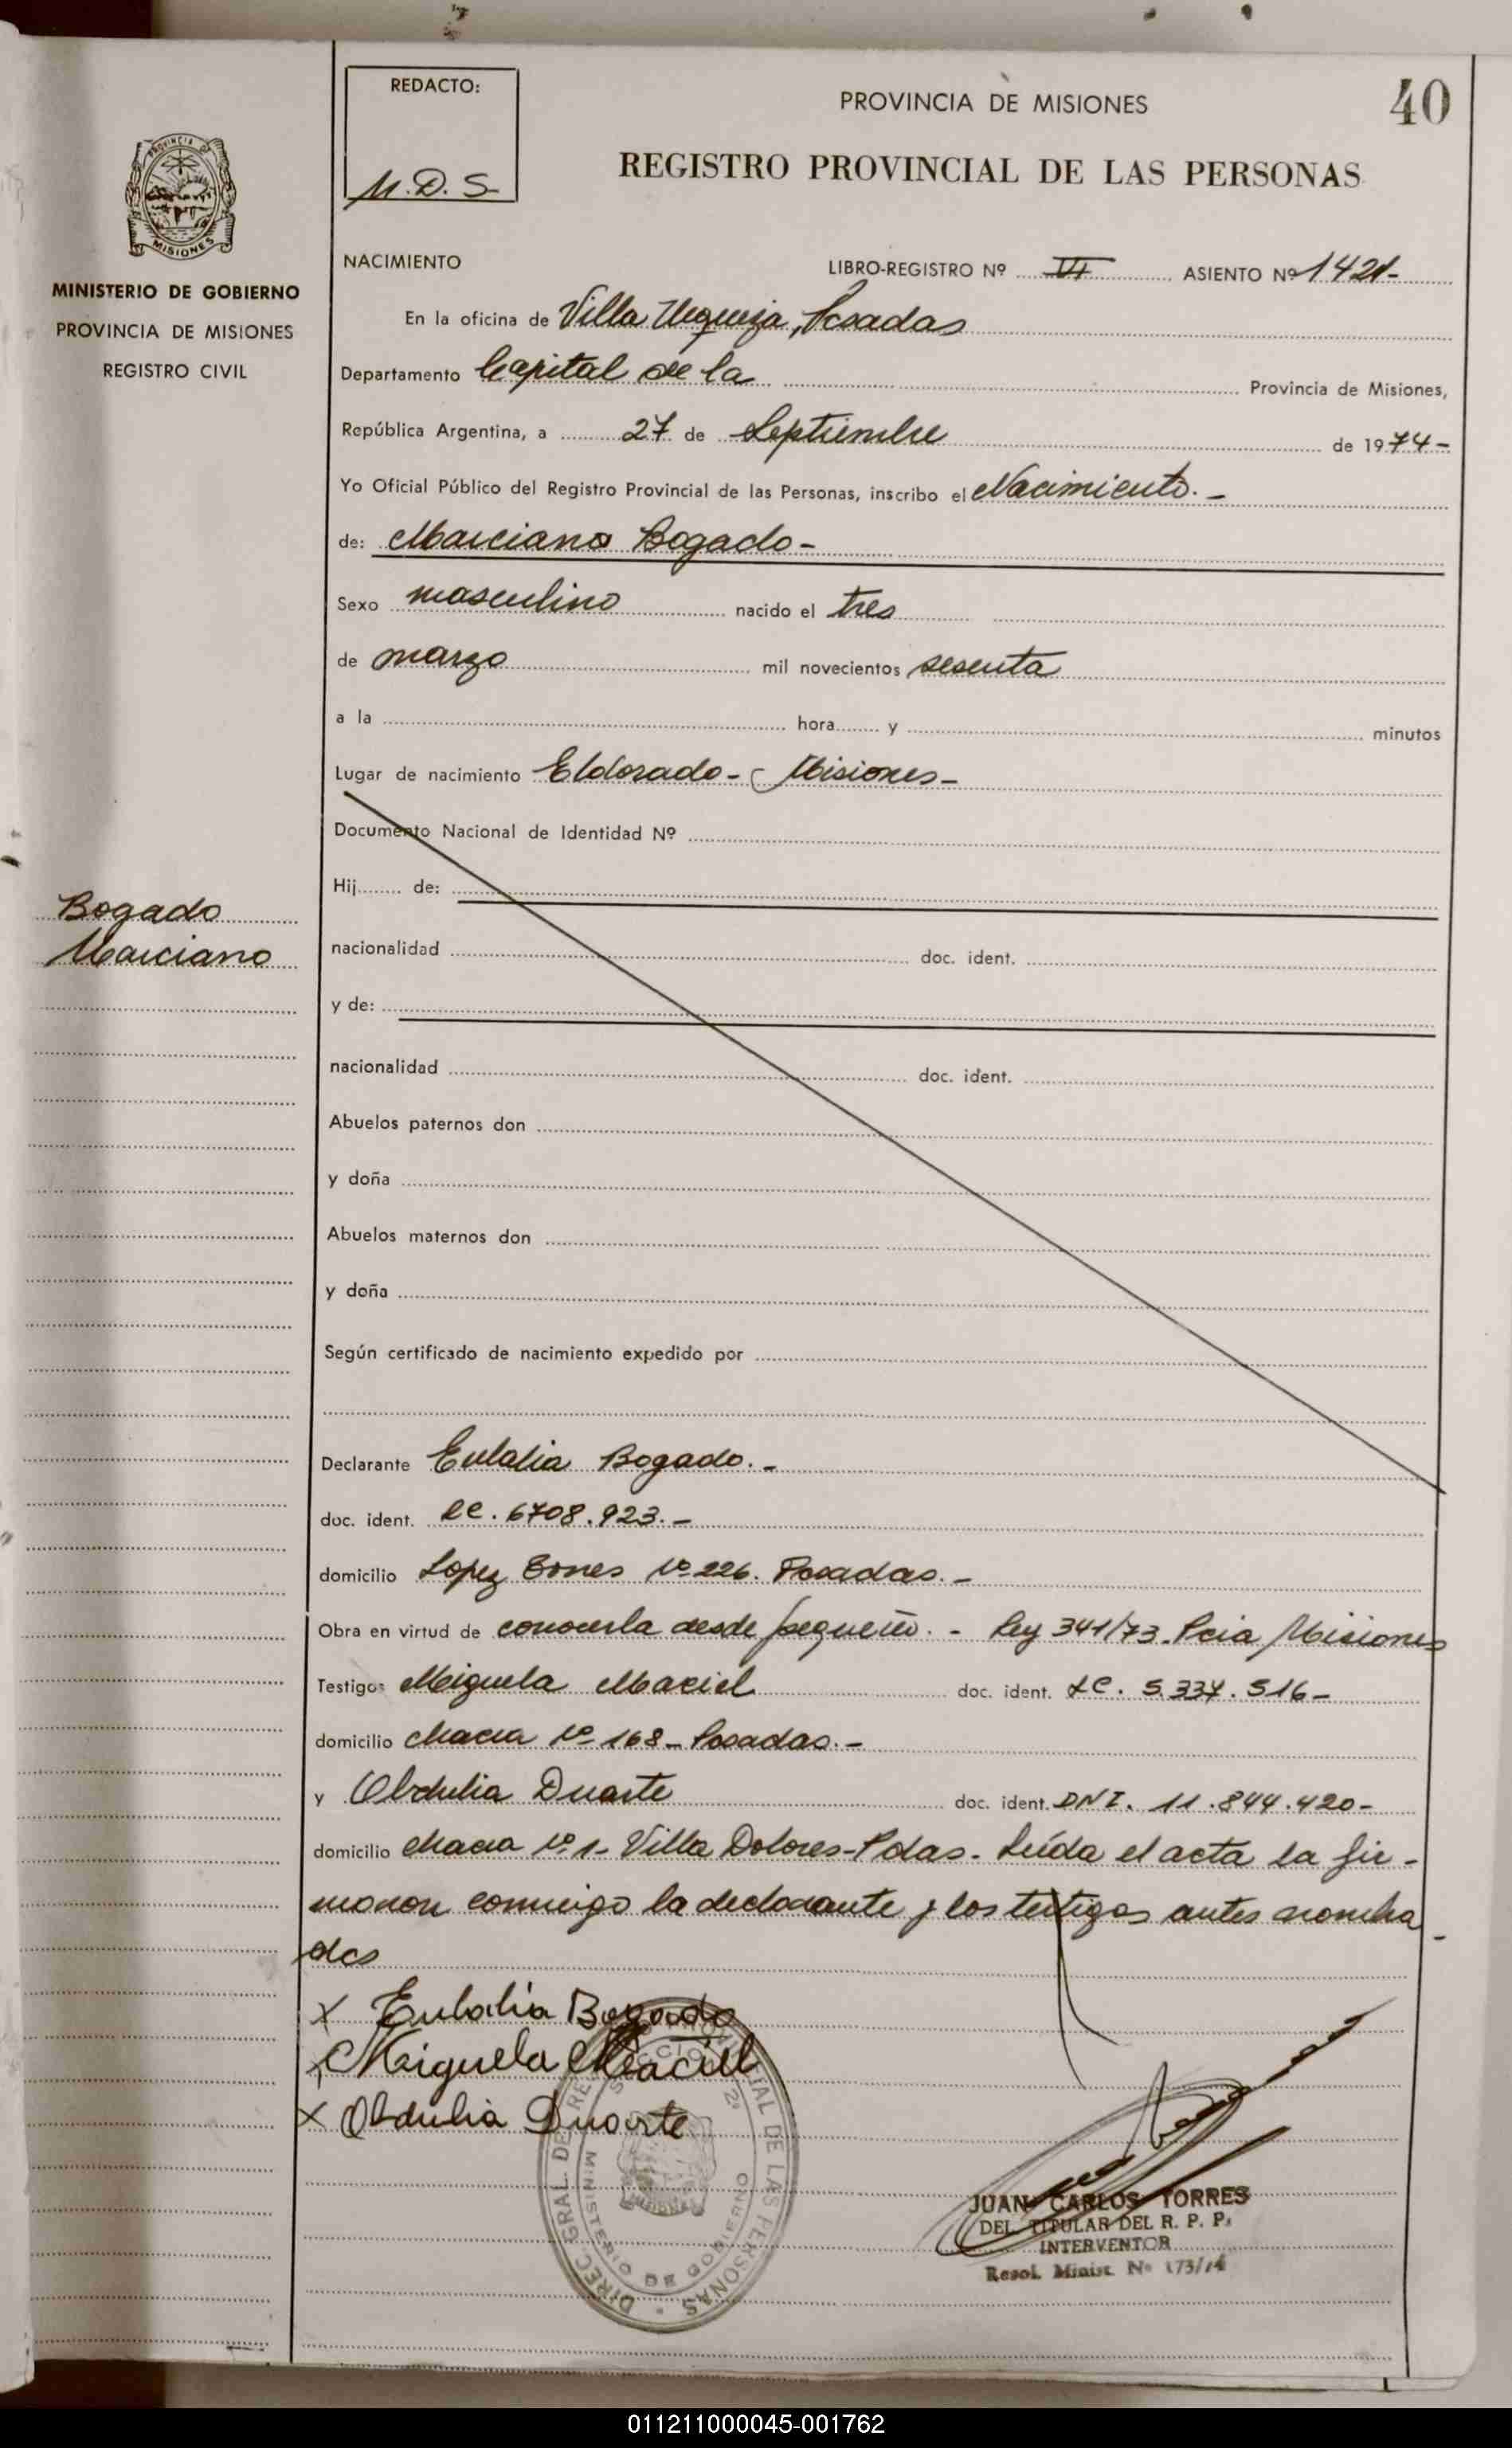 40
REDACTO:
M.D.S.
PROVINCIA DE MISIONES
REGISTRO PROVINCIAL DE LAS PERSONAS
PROVINCIA
MISIONES
MINISTERIO DE GOBIERNO
PROVINCIA DE MISIONES
REGISTRO CIVIL
NACIMIENTO
LIBRO-REGISTRO Nº VI ASIENTO Nº 1421-
En la oficina de Villa Urquiza, Posadas
Departamento Capital de la Provincia de Misiones,
República Argentina, a 27 de Septiembre de 1974-
Yo Oficial Público del Registro Provincial de las Personas, inscribo el Nacimiento.-
de: Marciano Bogado-
Sexo masculino nacido el tres
de marzo mil novecientos sesenta
a la hora y minutos
Lugar de nacimiento Eldorado- Misiones-
Documento Nacional de Identidad Nº
Hij de:
Bogado
Marciano
nacionalidad doc. ident.
y de:
nacionalidad doc. ident.
Abuelos paternos don
y doña
Abuelos maternos don
y doña
Según certificado de nacimiento expedido por
Declarante Eulalia Bogado.-
doc. ident. LC. 6708.923.-
domicilio Lopez Nº 226. Posadas.-
Obra en virtud de conocerla desde pequeño.- Ley 341/73. Pcia Misiones
Testigos Meiguela Maciel doc. ident. LC. 5.337.516-
domicilio Chacra Nº 168- Posadas.-
y Obdulia Duarte doc. ident. DNI. 11.844.420-
domicilio Chacra Nº 1- Villa Dolores-Pdas. Leída el acta la fir-
maron conmigo la declarante y los testigos antes nombra-
dos
X Eulalia Bogado
X Meiguela Maciel
X Obdulia Duarte
DIREC. GRAL. DEL REGISTRO PROVINCIAL DE LAS PERSONAS
SECCION 2ª
MINISTERIO DE GOBIERNO
JUAN CARLOS TORRES
DEL. TITULAR DEL R. P. P.
INTERVENTOR
Resol. Minist. Nº 173/74
011211000045-001762